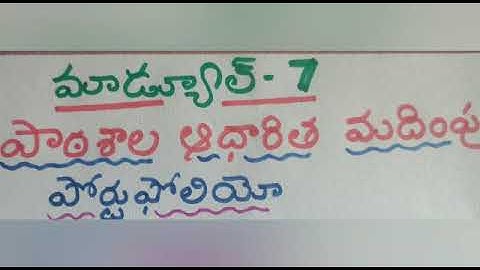 మాడ్యూల్ - 7
పాఠశాల ఆధారిత మదింపు
పోర్టుఫోలియో